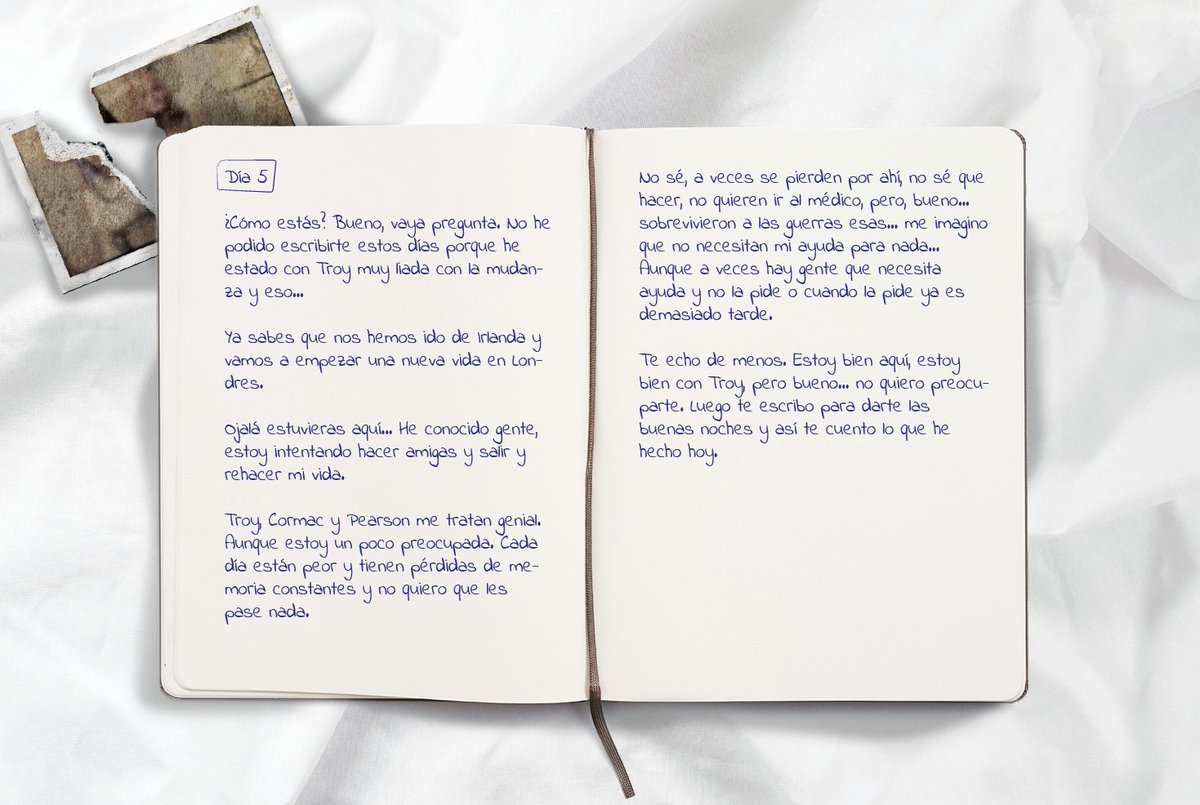 Día 5
¿Cómo estás? Bueno, vaya pregunta. No he
podido escribirte estos días porque he
estado con Troy muy liada con la mudan-
za y eso...
Ya sabes que nos hemos ido de Irlanda y
vamos a empezar una nueva vida en Lon-
dres.
Ojalá estuvieras aquí... He conocido gente,
estoy intentando hacer amigas y salir y
rehacer mi vida.
Troy, Cormac y Pearson me tratan genial.
Aunque estoy un poco preocupada. Cada
día están peor y tienen pérdidas de me-
moria constantes y no quiero que les
pase nada.
No sé, a veces se pierden por ahí, no sé que
hacer, no quieren ir al médico, pero, bueno...
sobrevivieron a las guerras esas... me imagino
que no necesitan mi ayuda para nada...
Aunque a veces hay gente que necesita
ayuda y no la pide o cuando la pide ya es
demasiado tarde.
Te echo de menos. Estoy bien aquí, estoy
bien con Troy, pero bueno... no quiero preocu-
parte. Luego te escribo para darte las
buenas noches y así te cuento lo que he
hecho hoy.